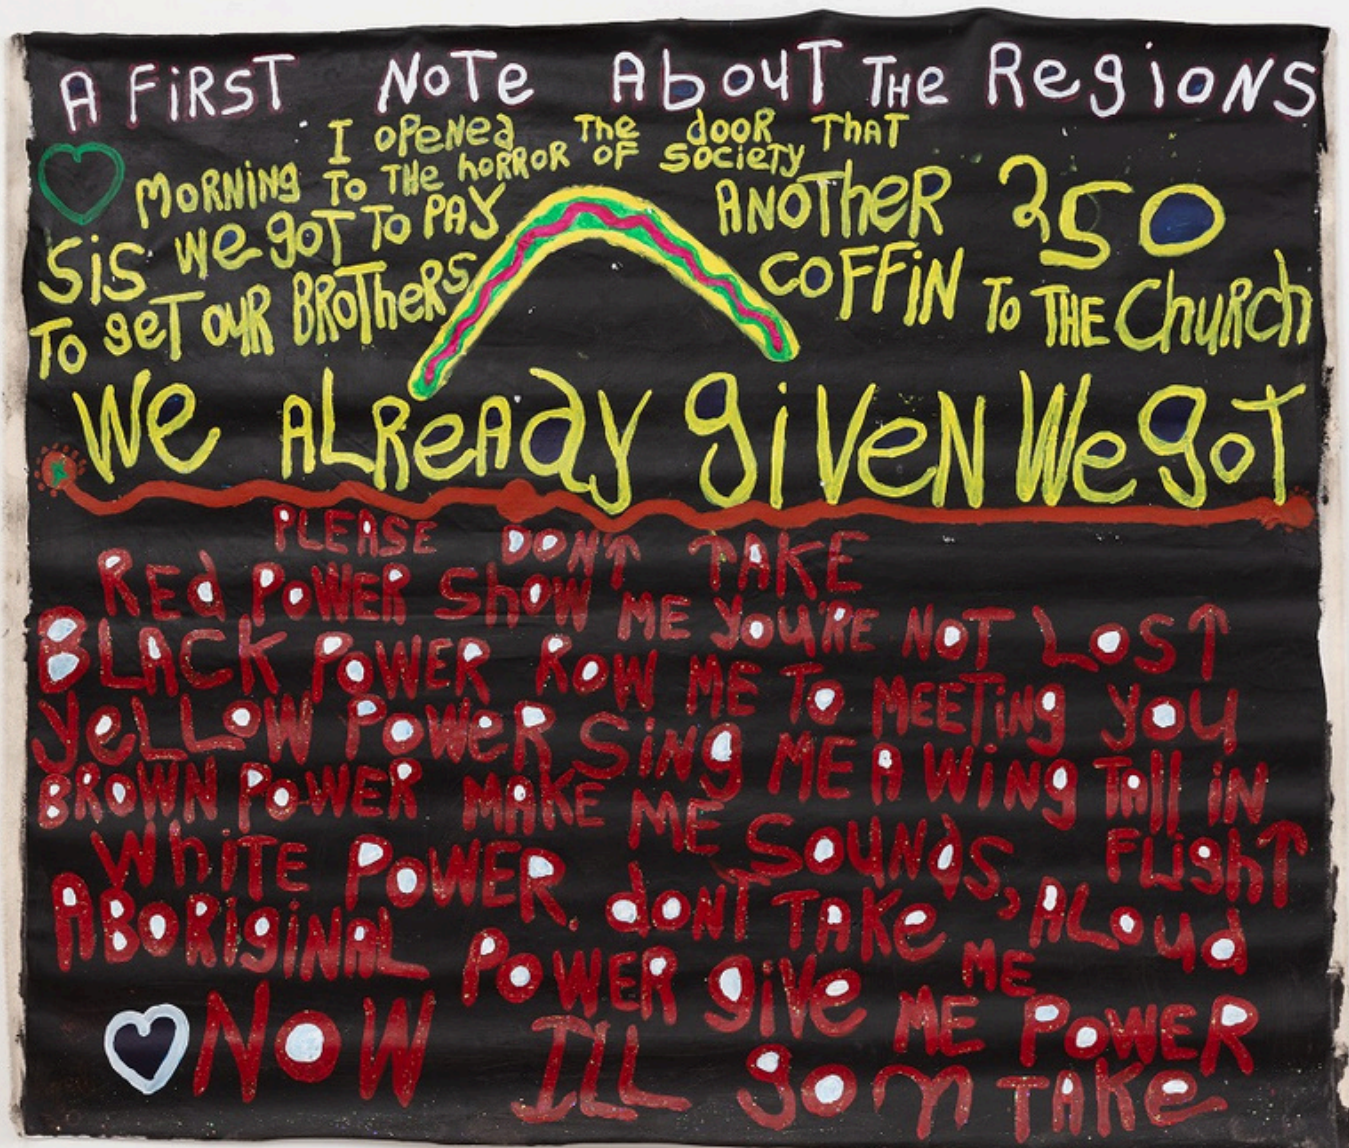 A FiRST NoTe AbouT THe RegioNS
I opeNed The dooR ThaT
MoRNiNg To THe hoRRoR oF SocieTy
SiS we goT To PAy ANoTheR 250
To geT ouR BRoTheRS coFFiN To THE ChuRch
We ALReAdy giVeN We goT
PLEASE DONT TAKE
REd POWER ShOW ME YOU'RE NOT LOST
BLACK POWER ROW ME TO MEETiNg YOU
YeLLOW POWeR SiNg ME A WiNg TAll iN FLighT
BROWN POWER MAKE ME SOUNdS, ALOUd
WhiTE POWER. dONT TAKe ME
ABORiGiNAL POWER giVe ME POWER
NOW ILL goN TAKe